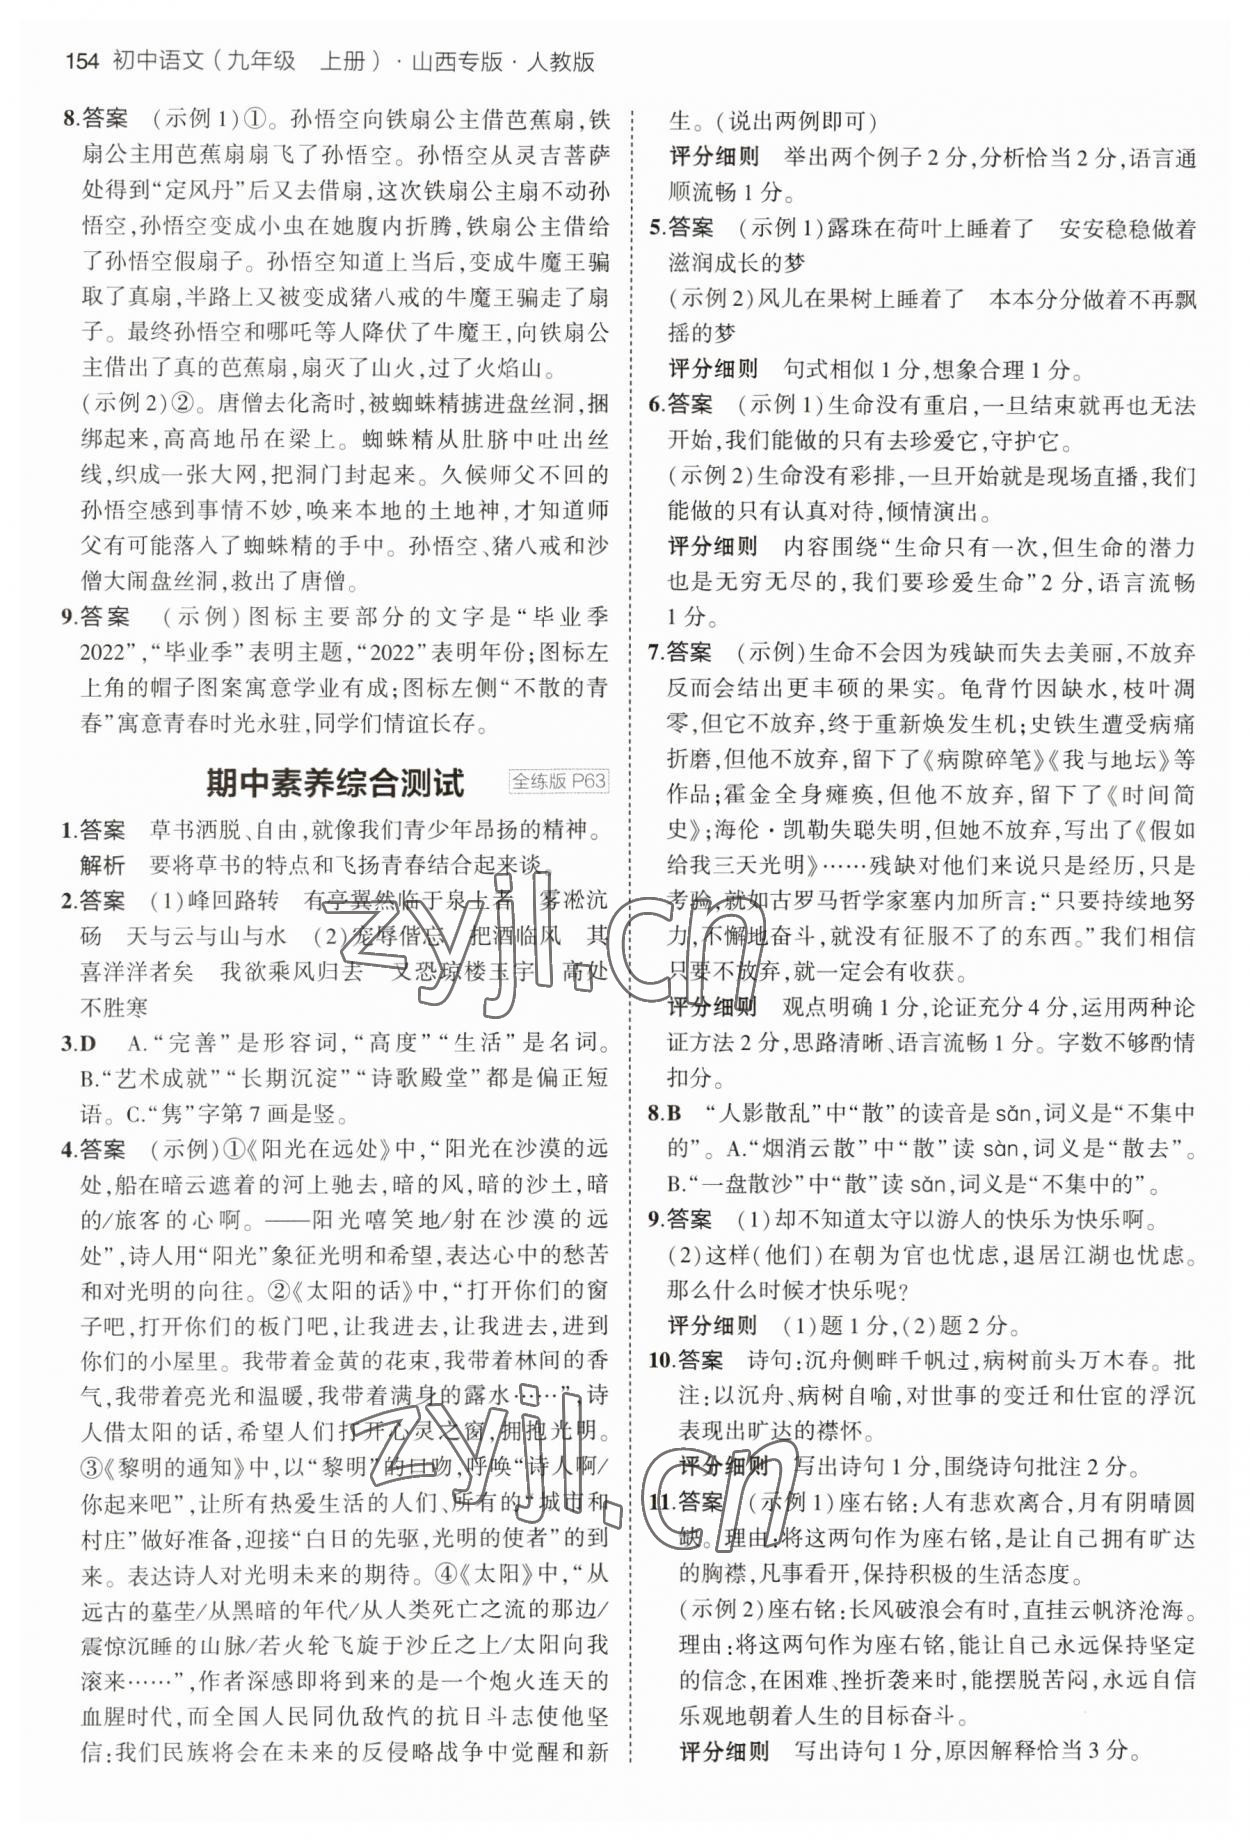 154 初中语文(九年级　上册)·山西专版·人教版
8.答案　(示例1)①。孙悟空向铁扇公主借芭蕉扇,铁
扇公主用芭蕉扇扇飞了孙悟空。孙悟空从灵吉菩萨
处得到“定风丹”后又去借扇,这次铁扇公主扇不动孙
悟空,孙悟空变成小虫在她腹内折腾,铁扇公主借给
了孙悟空假扇子。孙悟空知道上当后,变成牛魔王骗
取了真扇,半路上又被变成猪八戒的牛魔王骗走了扇
子。最终孙悟空和哪吒等人降伏了牛魔王,向铁扇公
主借出了真的芭蕉扇,扇灭了山火,过了火焰山。
(示例2)②。唐僧去化斋时,被蜘蛛精掳进盘丝洞,捆
绑起来,高高地吊在梁上。蜘蛛精从肚脐中吐出丝
线,织成一张大网,把洞门封起来。久候师父不回的
孙悟空感到事情不妙,唤来本地的土地神,才知道师
父有可能落入了蜘蛛精的手中。孙悟空、猪八戒和沙
僧大闹盘丝洞,救出了唐僧。
9.答案　(示例)图标主要部分的文字是“毕业季
2022”,“毕业季”表明主题,“2022”表明年份;图标左
上角的帽子图案寓意学业有成;图标左侧“不散的青
春”寓意青春时光永驻,同学们情谊长存。
期中素养综合测试　全练版 P63
1.答案　草书洒脱、自由,就像我们青少年昂扬的精神。
解析　要将草书的特点和飞扬青春结合起来谈。
2.答案　(1)峰回路转　有亭翼然临于泉上者　雾凇沆
砀　天与云与山与水　(2)宠辱偕忘　把酒临风　其
喜洋洋者矣　我欲乘风归去　又恐琼楼玉宇　高处
不胜寒
3.D　A.“完善”是形容词,“高度”“生活”是名词。
B.“艺术成就”“长期沉淀”“诗歌殿堂”都是偏正短
语。C.“隽”字第7画是竖。
4.答案　(示例)①《阳光在远处》中,“阳光在沙漠的远
处,船在暗云遮着的河上驰去,暗的风,暗的沙土,暗
的/旅客的心啊。——阳光嘻笑地/射在沙漠的远
处”,诗人用“阳光”象征光明和希望,表达心中的愁苦
和对光明的向往。②《太阳的话》中,“打开你们的窗
子吧,打开你们的板门吧,让我进去,让我进去,进到
你们的小屋里。我带着金黄的花束,我带着林间的香
气,我带着亮光和温暖,我带着满身的露水……”,诗
人借太阳的话,希望人们打开心灵之窗,拥抱光明。
③《黎明的通知》中,以“黎明”的口吻,呼唤“诗人啊/
你起来吧”,让所有热爱生活的人们、所有的“城市和
村庄”做好准备,迎接“白日的先驱,光明的使者”的到
来。表达诗人对光明未来的期待。④《太阳》中,“从
远古的墓茔/从黑暗的年代/从人类死亡之流的那边/
震惊沉睡的山脉/若火轮飞旋于沙丘之上/太阳向我
滚来……”,作者深感即将到来的是一个炮火连天的
血腥时代,而全国人民同仇敌忾的抗日斗志使他坚
信:我们民族将会在未来的反侵略战争中觉醒和新
生。(说出两例即可)
评分细则　举出两个例子2分,分析恰当2分,语言通
顺流畅1分。
5.答案　(示例1)露珠在荷叶上睡着了　安安稳稳做着
滋润成长的梦
(示例2)风儿在果树上睡着了　本本分分做着不再飘
摇的梦
评分细则　句式相似1分,想象合理1分。
6.答案　(示例1)生命没有重启,一旦结束就再也无法
开始,我们能做的只有去珍爱它,守护它。
(示例2)生命没有彩排,一旦开始就是现场直播,我们
能做的只有认真对待,倾情演出。
评分细则　内容围绕“生命只有一次,但生命的潜力
也是无穷无尽的,我们要珍爱生命”2分,语言流畅
1分。
7.答案　(示例)生命不会因为残缺而失去美丽,不放弃
反而会结出更丰硕的果实。龟背竹因缺水,枝叶凋
零,但它不放弃,终于重新焕发生机;史铁生遭受病痛
折磨,但他不放弃,留下了《病隙碎笔》《我与地坛》等
作品;霍金全身瘫痪,但他不放弃,留下了《时间简
史》;海伦·凯勒失聪失明,但她不放弃,写出了《假如
给我三天光明》……残缺对他们来说只是经历,只是
考验,就如古罗马哲学家塞内加所言:“只要持续地努
力,不懈地奋斗,就没有征服不了的东西。”我们相信
只要不放弃,就一定会有收获。
评分细则　观点明确1分,论证充分4分,运用两种论
证方法2分,思路清晰、语言流畅1分。字数不够酌情
扣分。
8.B　“人影散乱”中“散”的读音是sǎn,词义是“不集中
的”。A.“烟消云散”中“散”读sàn,词义是“散去”。
B.“一盘散沙”中“散”读sǎn,词义是“不集中的”。
9.答案　(1)却不知道太守以游人的快乐为快乐啊。
(2)这样(他们)在朝为官也忧虑,退居江湖也忧虑。
那么什么时候才快乐呢?
评分细则　(1)题1分,(2)题2分。
10.答案　诗句:沉舟侧畔千帆过,病树前头万木春。批
注:以沉舟、病树自喻,对世事的变迁和仕宦的浮沉
表现出旷达的襟怀。
评分细则　写出诗句1分,围绕诗句批注2分。
11.答案　(示例1)座右铭:人有悲欢离合,月有阴晴圆
缺。理由:将这两句作为座右铭,是让自己拥有旷达
的胸襟,凡事看开,保持积极的生活态度。
(示例2)座右铭:长风破浪会有时,直挂云帆济沧海。
理由:将这两句作为座右铭,能让自己永远保持坚定
的信念,在困难、挫折袭来时,能摆脱苦闷,永远自信
乐观地朝着人生的目标奋斗。
评分细则　写出诗句1分,原因解释恰当3分。
zyjl.cn
zyjl.cn